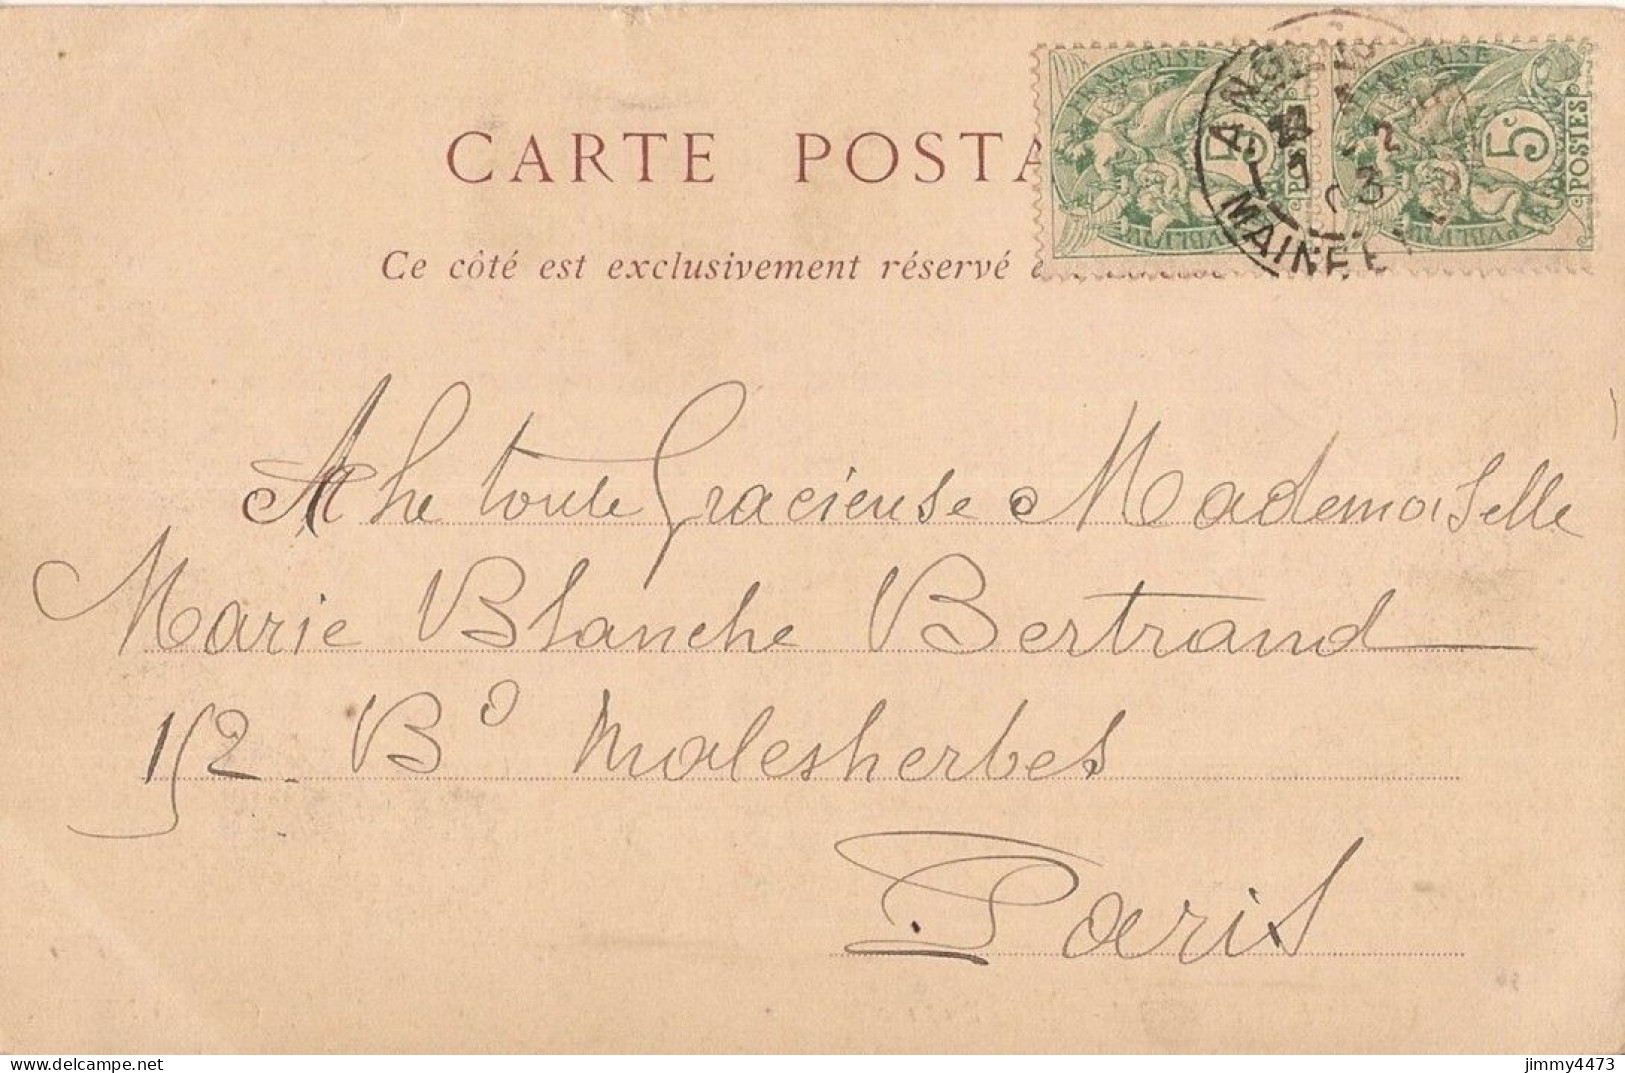 CARTE POSTA
Ce côté est exclusivement réservé
FRANÇAISE
5c
POSTES
FRANÇAISE
5c
POSTES
ANGERS
2
03
MAINE ET
A the toute Gracieuse Mademoiselle
Marie Blanche Bertrand
152 - Bd Malesherbes
Paris
www.delcampe.net
jimmy4473